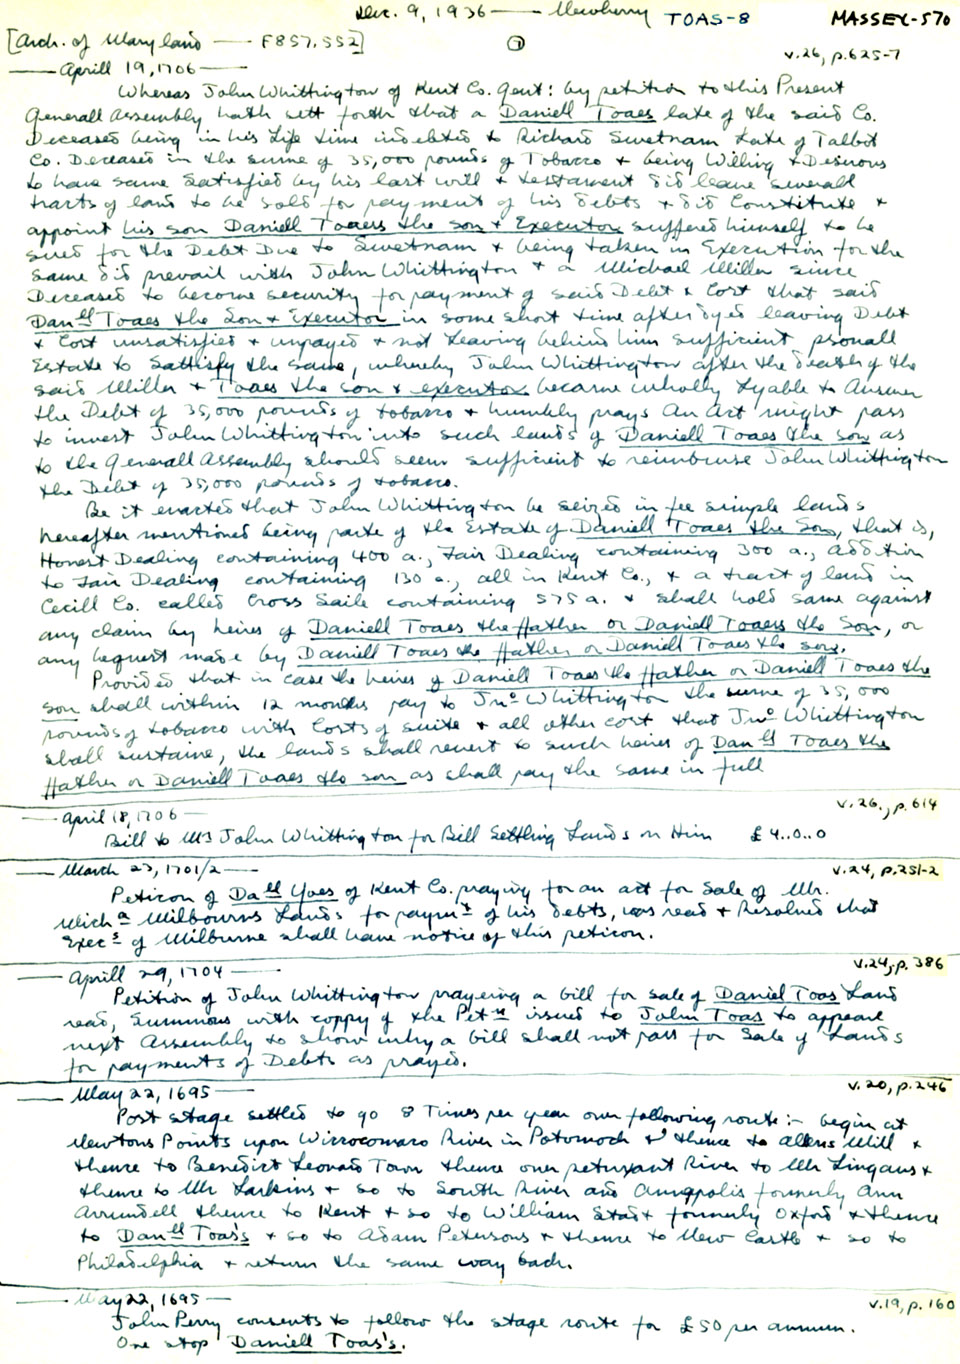 Dec. 9, 1936 — Newberry TOAS-8 MASSEY-570
[Arch. of Maryland — F857.552] 1 v.26, p.625-7
— Aprill 19, 1706 —
Whereas John Whittington of Kent Co. Gent: by petition to this Present
Generall Assembly hath sett forth that a Daniell Toaes late of the said Co.
Deceased being in his Life time indebted to Richard Swetnam Late of Talbot
Co. Deceased in the sume of 35,000 pounds of Tobacco & being Willing & Desirous
to have same Satisfied by his last will & testament did leave severall
tracts of land to be sold for payment of his debts & did Constitute &
appoint his son Daniell Toaes the son & Executor suffered himself to be
sued for the Debt Due to Swetnam & being taken in Execution for the
same did prevail with John Whittington & a Michael Miller since
Deceased to become security for payment of said Debt & Cost that said
Danll Toaes the Son & Executor in some short time after dyed leaving Debt
& Cost unsatisfied & unpayed & not Leaving behind him sufficient psonall
Estate to Sattisfy the same, whereby John Whittington after the death of the
said Miller & Toaes the son & executor became wholly Lyable to Answer
the Debt of 35,000 pounds of tobacco & humbly prays An Act might pass
to invest John Whittington into such lands of Daniell Toaes the son as
to the Generall Assembly should seem sufficient to reimburse John Whittington
the Debt of 35,000 pounds of tobacco.
Be it enacted that John Whittington be seized in fee simple lands
hereafter mentioned being parte of the Estate of Daniell Toaes the Son, that is,
Honest Dealing containing 400 a., Fair Dealing containing 300 a., addition
to Fair Dealing containing 130 a., all in Kent Co., & a tract of land in
Cecill Co. called Cross Saile containing 575 a. & shall hold same against
any claim by heires of Daniell Toaes the ffather or Daniell Toaes the Son, or
any bequest made by Daniell Toaes the ffather or Daniell Toaes the son.
Provided that in case the heires of Daniell Toaes the ffather or Daniell Toaes the
son shall within 12 months pay to Jno Whittington the sume of 35,000
pounds of tobacco with Costs of suite & all other cost that Jno Whittington
shall sustaine, the lands shall revert to such heires of Danll Toaes the
ffather or Daniell Toaes the son as shall pay the same in full
— April 18, 1706 — v.26, p.614
Bill to Mr John Whittington for Bill Settling Lands on Him £4..0..0
— March 23, 1701/2 — v.24, p.251-2
Peticon of Dall Yoaes of Kent Co. praying for an act for Sale of Mr.
Micha Milbourns Lands for paymt of his debts, was read & Resolved that
Execs of Milburne shall have notice of this peticon.
— Aprill 29, 1704 — v.24, p.386
Petition of John Whittington prayering a bill for sale of Daniel Toas Land
read, Summons with coppy of the Petn issued to John Toas to appeare
next Assembly to show why a bill shall not pass for Sale of Lands
for payments of Debts as prayed.
— May 22, 1695 — v.20, p.246
Post stage settled to go 8 Times per year over following route:- begin at
Newtons Points upon Wiccocomaco River in Potomock & thence to Allens Mill &
thence to Benedict Leonard Town thence over petuxant River to Mr Lingans &
thence to Mr Larkins & so to South River and Annapolis formerly Ann
Arundell thence to Kent & so to William Stadt formerly Oxford & thence
to Danll Toas's & so to Adam Petersons & thence to New Castle & so to
Philadelphia & return the same way back.
— May 22, 1695 — v.19, p.160
John Perry consents to follow the stage route for £50 per annum.
One stop Daniell Toas's.